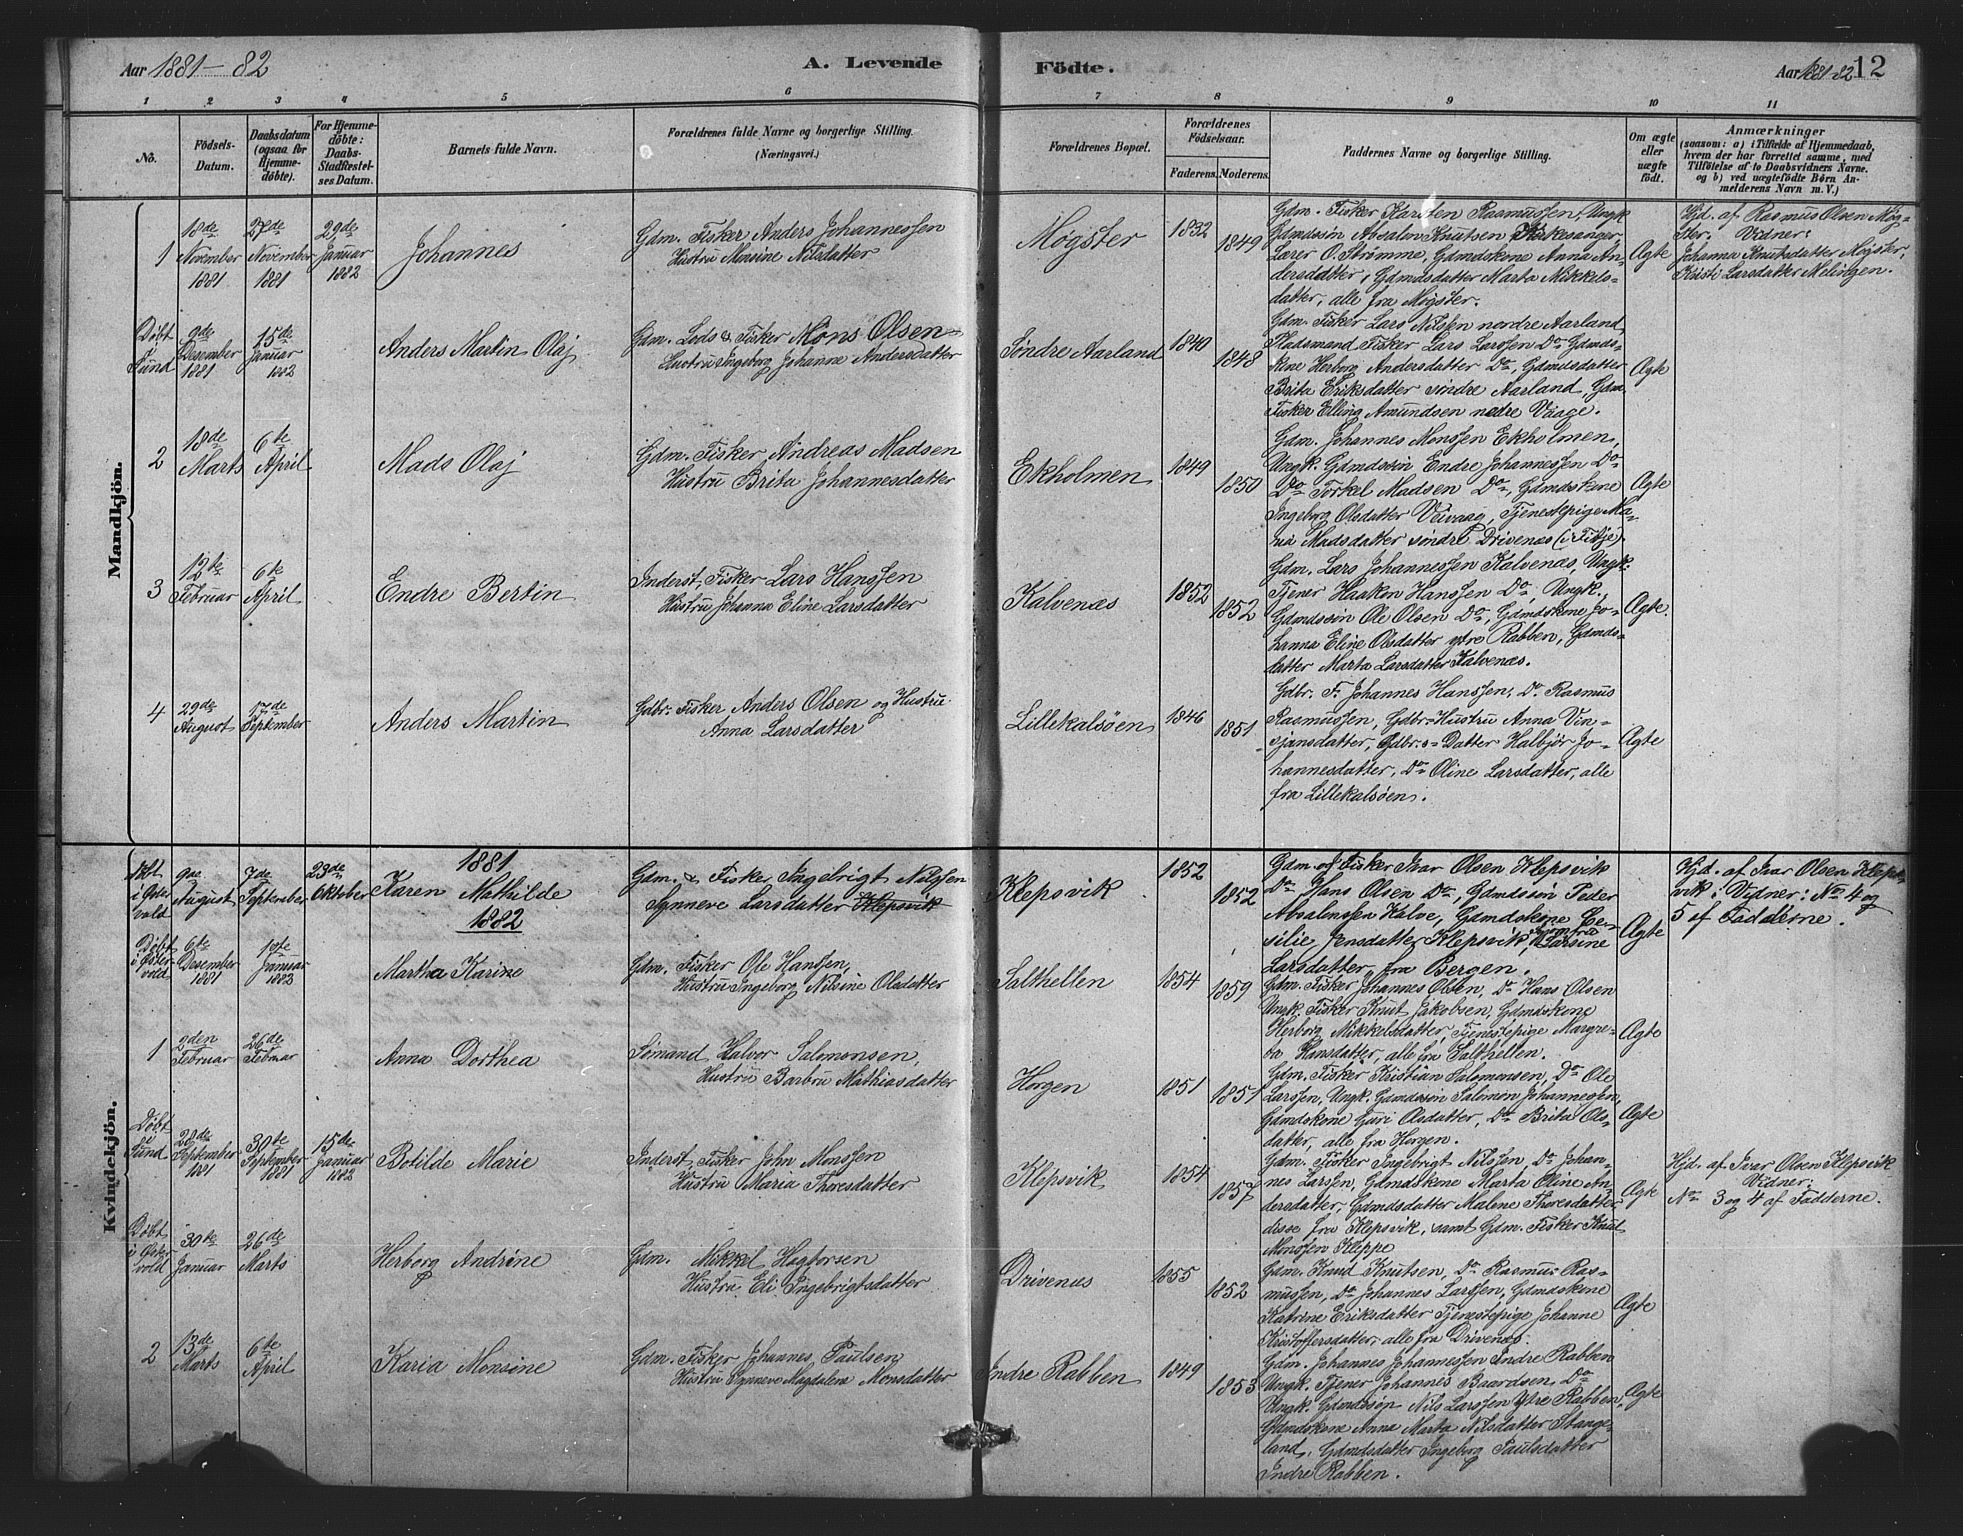 Aar 1881-82
A. Levende
Födte.
Aar 1881-82 12
1 2 3 4 5 6 7 8 9 10 11
No.
Födsels-Datum.
Daabsdatum (ogsaa for Hjemmedöbte).
For Hjemmedöbte: Daabs-Stadfæstelses Datum.
Barnets fulde Navn.
Forældrenes fulde Navne og borgerlige Stilling.
(Næringsvei.)
Forældrenes Bopæl.
Forældrenes Födselsaar.
Faderens. Moderens.
Faddernes Navne og borgerlige Stilling.
Om ægte eller uægte födt.
Anmærkninger
(saasom: a) i Tilfælde af Hjemmedaab,
hvem der har forrettet samme, med
Tilföielse af to Daabsvidners Navne.
og b) ved uægtefödte Börn An-
melderens Navn m. V.)
Mandkjön.
1
18de November 1881
27de November 1881
29de Januar 1882
Johannes
Gdm. Fisker Anders Johannessen
Hustru Monsine Nilsdatter
Møgster
1832
1849
Gdm. Fisker Karsten Rasmussen, Ungk
Gdmdssøn Absalon Knutsen, Kirkesanger
Lærer O. Strømme, Gdmdskone Anna An-
dersdatter, Gdmdsdatter Marta Mikkels-
datter, alle fra Møgster.
Ægte
Hjd. af Rasmus Olsen Møg-
ster. Vidner:
Johanna Knutsdatter Møgster,
Kristi Larsdatter Melingen.
Døbt i Sund
9de Desember 1881
15de Januar 1882
Anders Martin Olaj
Gdm. Lods & Fisker Mons Olsen
Hustru Ingeborg Johanne Andersdatter
Søndre Aarland
1840
1848
Gdm. Fisker Lars Nilsen nordre Aarland,
Pladsmand Fisker Lars Larssen Do, Gdmds-
kone Herborg Andersdatter Do, Gdmdsdatter
Brita Eriksdatter søndre Aarland, Gdm.
Fisker Elling Amundsen nedre Vaage.
Ægte
2
18de Marts
6te April
Mads Olaj
Gdm. Fisker Andreas Madsen
Hustru Brita Johannesdatter
Ekholmen
1849
1850
Gdm. Johannes Monssen Ekholmen,
Ungk. Gdmdssøn Endre Johannessen Do
Do Torkel Madsen Do, Gdmdskone
Ingeborg Olsdatter Veivaag, Tjenestepige Ma-
ria Madsdatter søndre Drivenæs (i Fitje).
Ægte
3
12te Februar
6te April
Endre Bertin
Inderst, Fisker Lars Hanssen
Hustru Johanna Eline Larsdatter
Kalvenæs
1852
1852
Gdm. Lars Johannessen Kalvenæs, Ungk.
Tjener Haaken Hanssen Do, Ungk.
Gdmdssøn Ole Olsen Do, Gdmdskone Jo-
hanna Eline Olsdatter ytre Rabben, Gdmds-
datter Marta Larsdatter Kalvenæs.
Ægte.
4
29de August
17de September
Anders Martin
Gdbr. Fisker Anders Olsen og Hustru
Anna Larsdatter
Lillekalsöen
1846
1851
Gdbr. F. Johannes Hanssen, Do Rasmus
Rasmussen, Gdbr-Hustru Anna Vin-
sjansdatter, Gdbr.s-Datter Halbjör Jo-
hannesdatter, Do Oline Larsdatter, alle
fra Lillekalsöen.
Ægte
Kvindekjön.
9de August
7de September
23de Oktober
1881
Karen Mathilde
1882
Gdm. & Fisker Ingebrigt Nilssen
Synneve Larsdatter Klepsvik
Klepsvik
1852
1852
Gdm. og Fisker Ivar Olsen Klepsvik
Do Hans Olsen Do, Gdmdssøn Peder
Absalonssen Kalve, Gdmdskone Ce-
silie Jensdatter Klepsvik, Larsine
Larsdatter fra Bergen.
Ægte
Hjd. af Ivar Olsen Kleps-
vik. Vidner: No 4 og
5 af Fadderne.
Døbt i Østervold
6te Desember 1881
Januar
Martha Karine
Gdm. Fisker Ole Hanssen,
Hustru Ingeborg Nilsine Olsdatter
Salthellen
1854
1859
Gdm. Fisker Johannes Olsen, Do Hans Olsen
Ungk. Fisker Knut Jakobsen, Gdmdskone
Herborg Mikkelsdatter, Tjenestepige Margre-
ta Hansdatter, alle fra Salthellen.
Ægte
1
2den Februar
26de Februar
Anna Dorthea
Sömand Halvor Salomonsen,
Hustru Barbru Mathiasdatter
Horgen
1851
1851
Gdm. Fisker Kristian Salomonsen, Do Ole
Larssen, Ungk. Gdmdssøn Salomon Johannessen,
Gdmdskone Guri Olsdatter, Do Brita Ols-
datter, alle fra Horgen.
Ægte
Döbt i Sund
28de September 1881
30te September 1881
15de Januar 1882
Botilde Marie
Inderst, Fisker John Monssen
Hustru Maria Thoresdatter
Klepsvik
1854
1857
Gdm. Fisker Ingebrigt Nilssen, Do Johan-
nes Larssen, Gdmdskone Marta Oline An-
dersdatter, Gdmdsdatter Malene Thoresdatter,
disse fra Klepsvik, samt Gdm. Fisker Knut
Monssen Kleppe
Ægte
Hjd. af Ivar Olsen Klepsvik
Vidner:
No 3 og 4 af Fadderne.
Döbt i Østervold
30te Januar
26de Marts
Herborg Andrine
Gdm. Mikkel Hagtorsen
Hustru Eli Ingebrigtsdatter
Drivenæs
1855
1852
Gdm. Knud Knutsen, Do Rasmus Ras-
mussen, Do Johannes Larssen, Gdmdskone
Katrine Eriksdatter, Tjenestepige Johanne
Kristoffersdatter, alle fra Drivenæs.
Ægte
2
13de Marts
6te April
Karia Monsine
Gdm. Fisker Johannes Paulsen
Hustru Synneve Magdalena Monsdatter
Indre Rabben
1849
1853
Gdm. Johannes Johannessen Indre Rabben
Ungk. Tjener Johannes Baardsen, Do
Ungk. Gdmdssøn Nils Larssen Ytre Rabben,
Gdmdskone Anna Marta Nilsdatter Stange-
land, Gdmdsdatter Ingeborg Paulsdatter
Indre Rabben.
Ægte